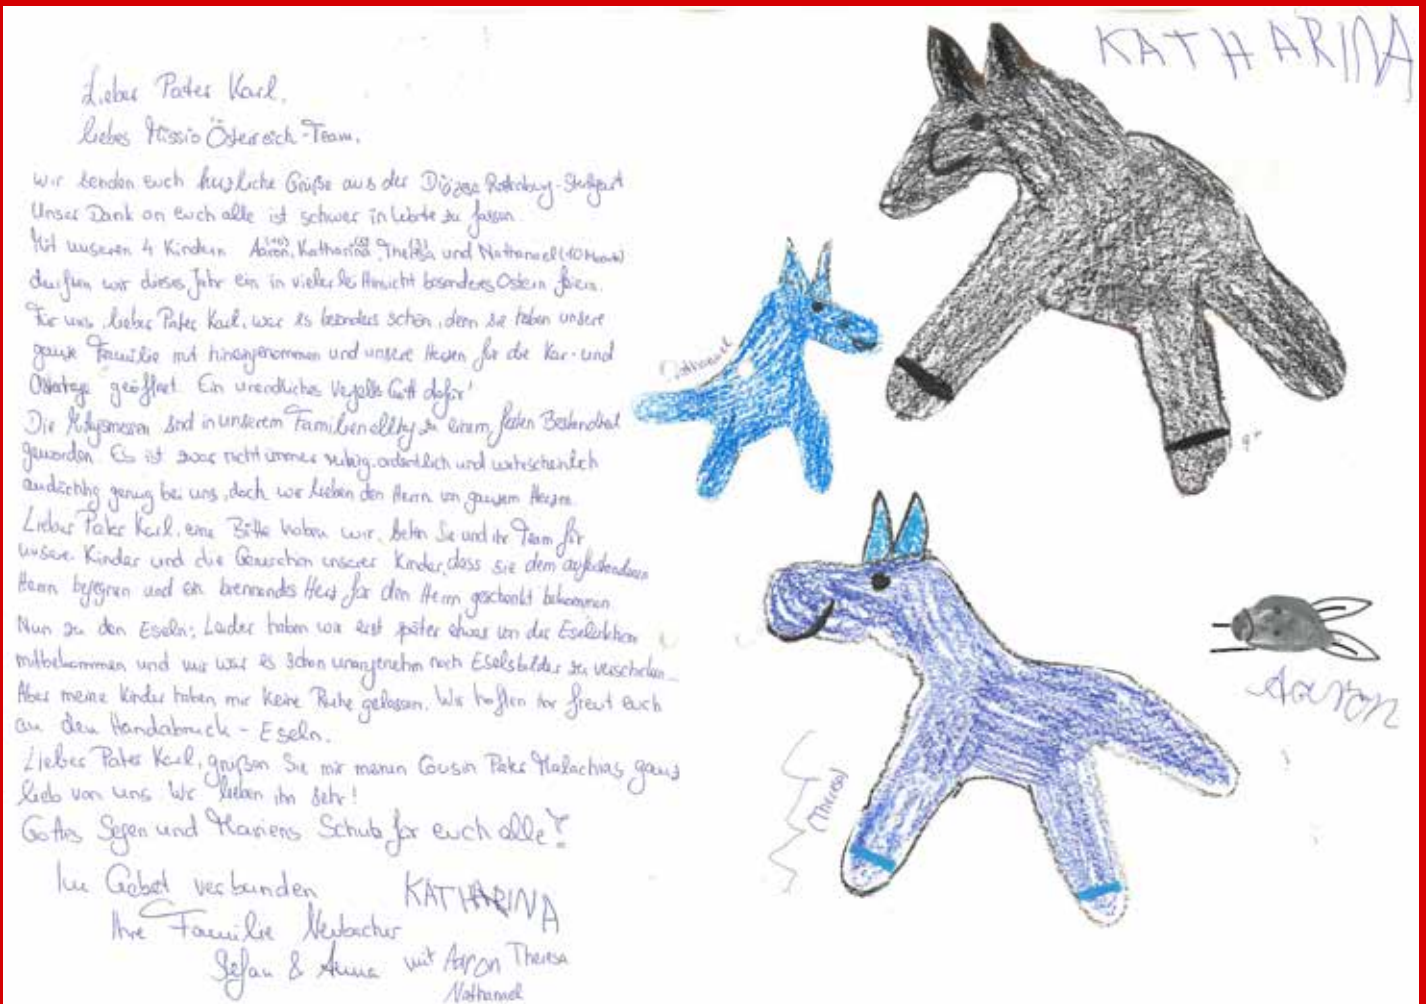 Lieber Pater Karl,
liebes Missio Österreich-Team,
wir senden euch herzliche Grüße aus der Diözese Rottenburg-Stuttgart
Unser Dank an euch alle ist schwer in Worte zu fassen.
Mit unseren 4 Kindern Aaron, Katharina, Theresa und Nathanael (10 Monate)
durften wir dieses Jahr ein in vielerlei Hinsicht besonderes Ostern feiern.
Für uns, lieber Pater Karl, war es besonders schön, denn sie haben unsere
ganze Familie mit hineingenommen und unsere Herzen für die Kar- und
Ostertage geöffnet. Ein unendliches Vergelts Gott dafür!
Die sind in unserem Familienalltag zu einem festen Bestandteil
geworden. Es ist zwar nicht immer ruhig, ordentlich und wahrscheinlich
andächtig genug bei uns, doch wir lieben den Herrn von ganzem Herzen.
Lieber Pater Karl, eine Bitte haben wir, beten Sie und ihr Team für
unsere Kinder und die unserer Kinder, dass sie dem auferstandenen
Herrn begegnen und ein brennendes Herz für den Herrn geschenkt bekommen.
Nun zu den Eseln: Leider haben wir erst später etwas von der Eselaktion
mitbekommen und mir war es schon unangenehm noch Eselsbilder zu verschicken...
Aber meine Kinder haben mir keine Ruhe gelassen. Wir hoffen ihr freut euch
an den Handabdruck-Eseln.
Lieber Pater Karl, grüßen Sie mir meinen Cousin Pater Malachias ganz
lieb von uns. Wir lieben ihn sehr!
Gottes Segen und Mariens Schutz für euch alle!
Im Gebet verbunden
KATHARINA
Ihre Familie Neubacher
Stefan & Anna mit Aaron Theresa
Nathanael
KATHARINA
Nathanael
Aaron
(Theresa)